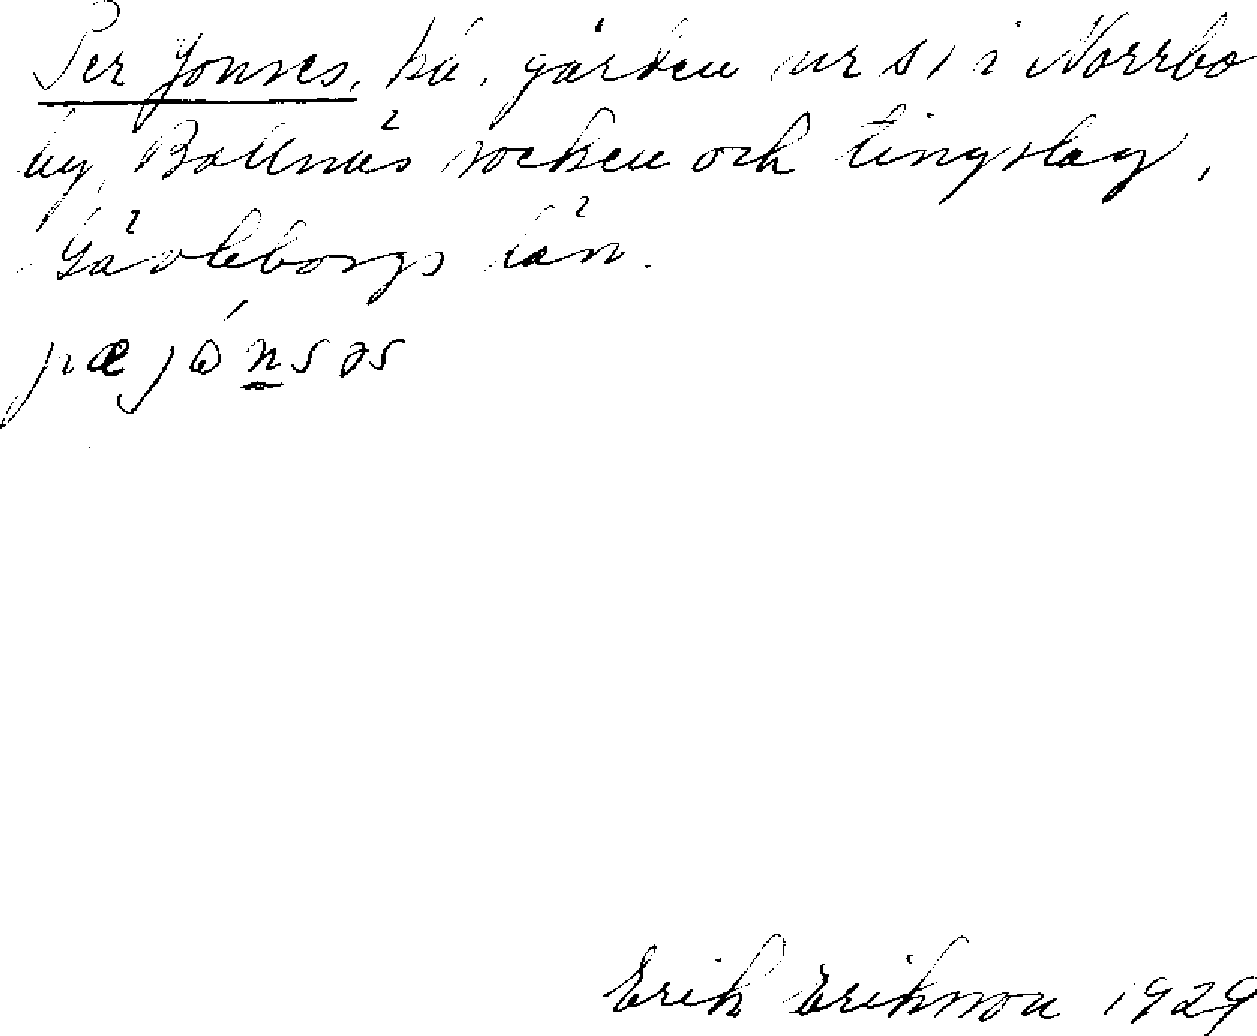 Per Jonses, på gården nr 8, i Norrbo
by, Bollnäs socken och tingslag,
Gävleborgs län.
Erik Erikson 1929